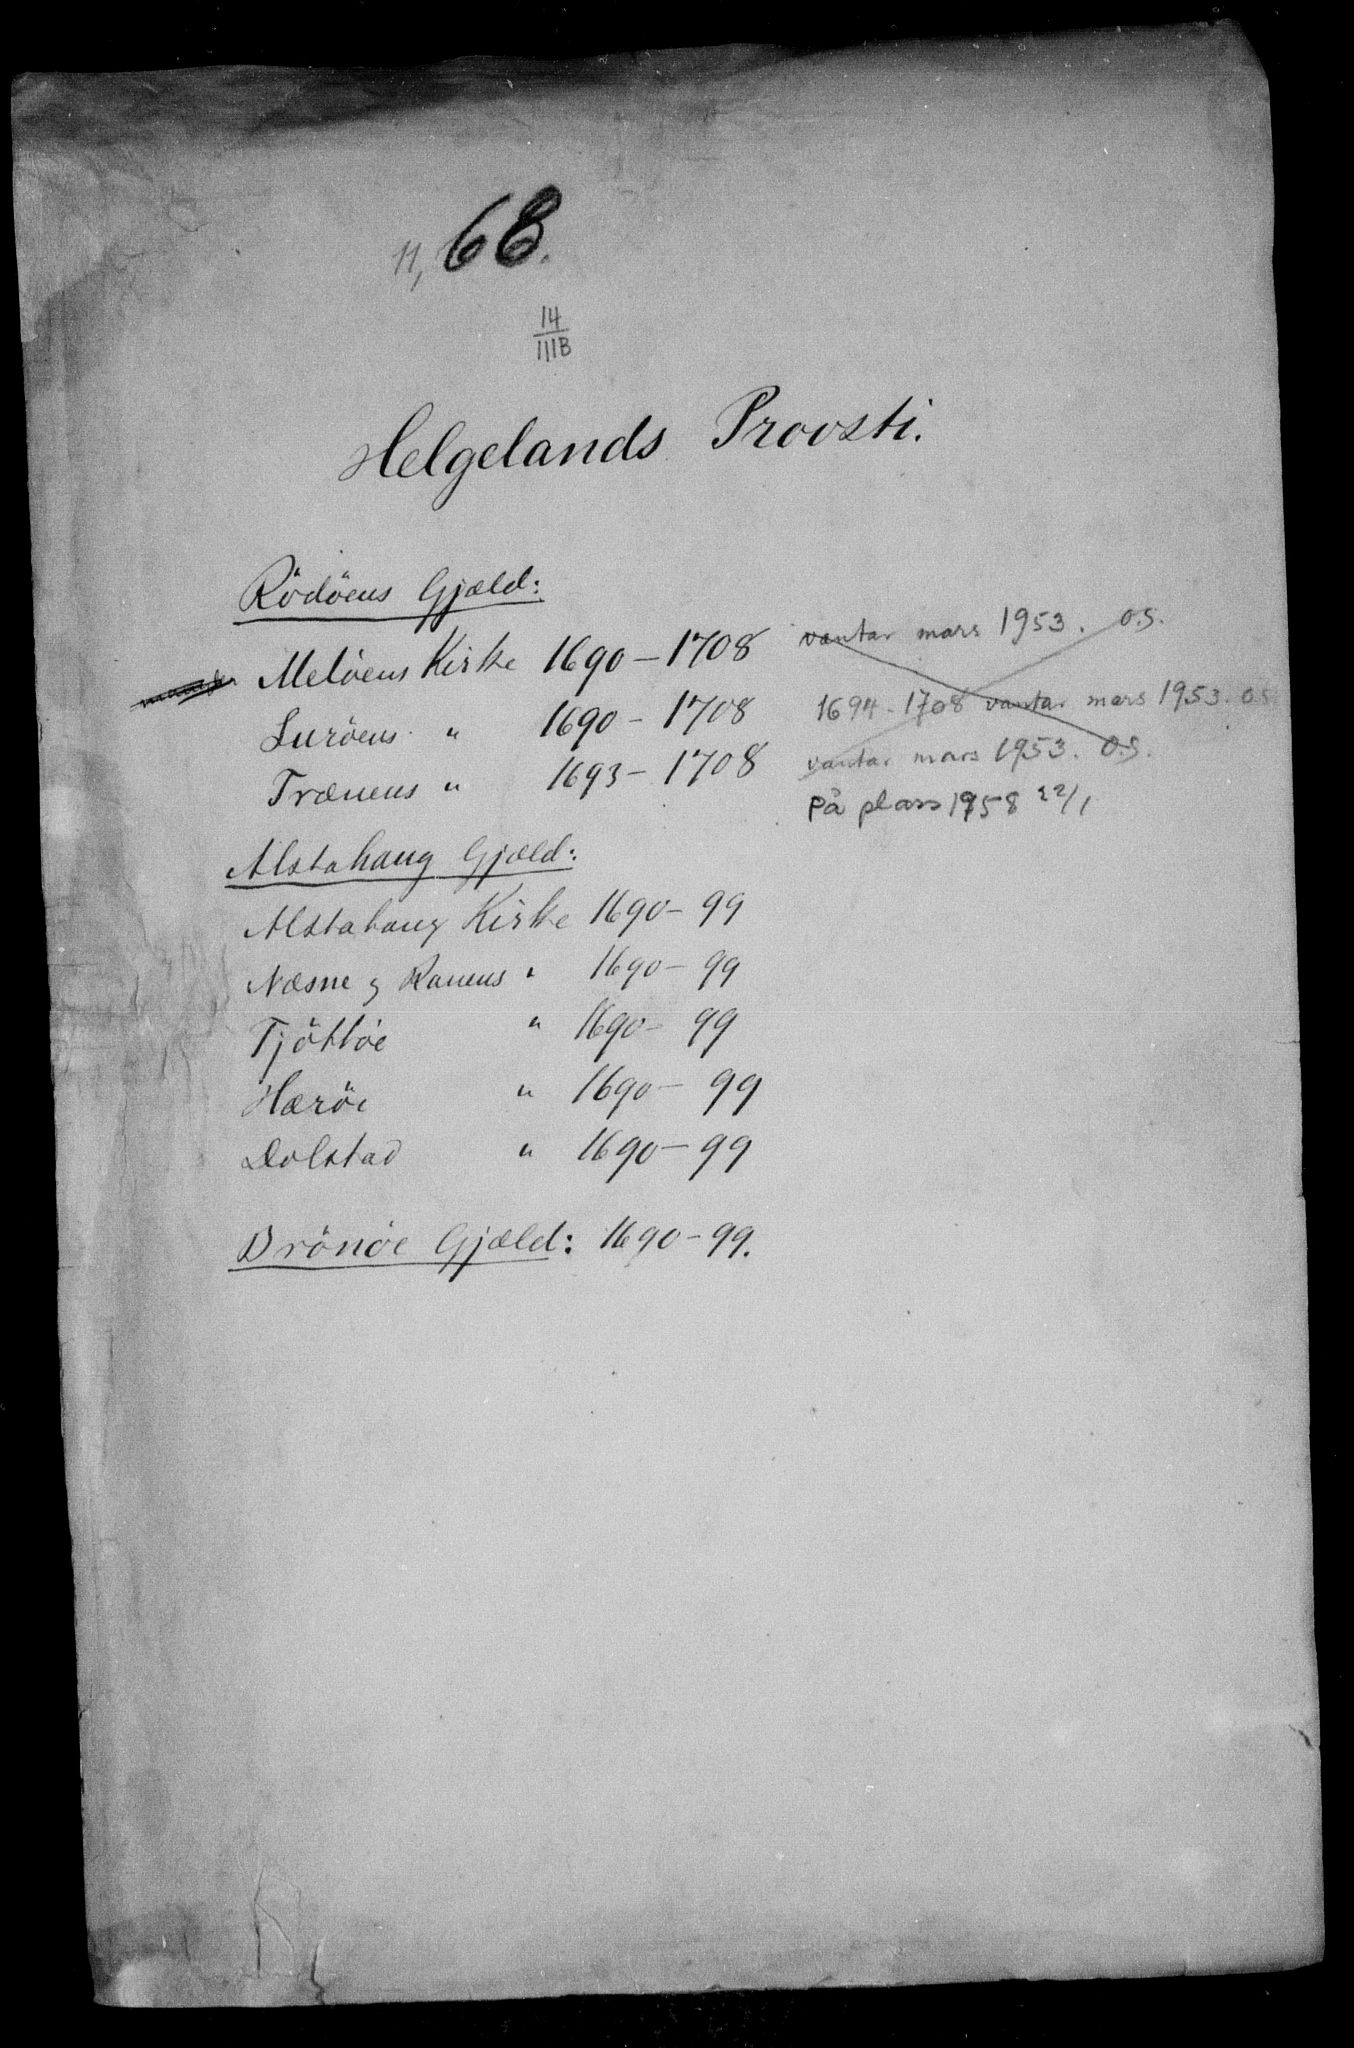 11, 68.
14
IIIB
Helgelands Provsti.
Rödöens Gjæld:
Melöens Kirke 1690-1708 vantar mars 1953. O.S.
Luröens " 1690-1708 1694-1708 vantar mars 1953. O.S.
Trænens " 1693-1708 vantar mars 1953. O.S.
På plass 1958 22/1
Alstahaug Gjæld:
Alstahaug Kirke 1690-99
Næsne og Ranens " 1690-99
Tjöttöe " 1690-99
Heröe " 1690-99
Dolstad " 1690-99
Brönöe Gjæld: 1690-99.